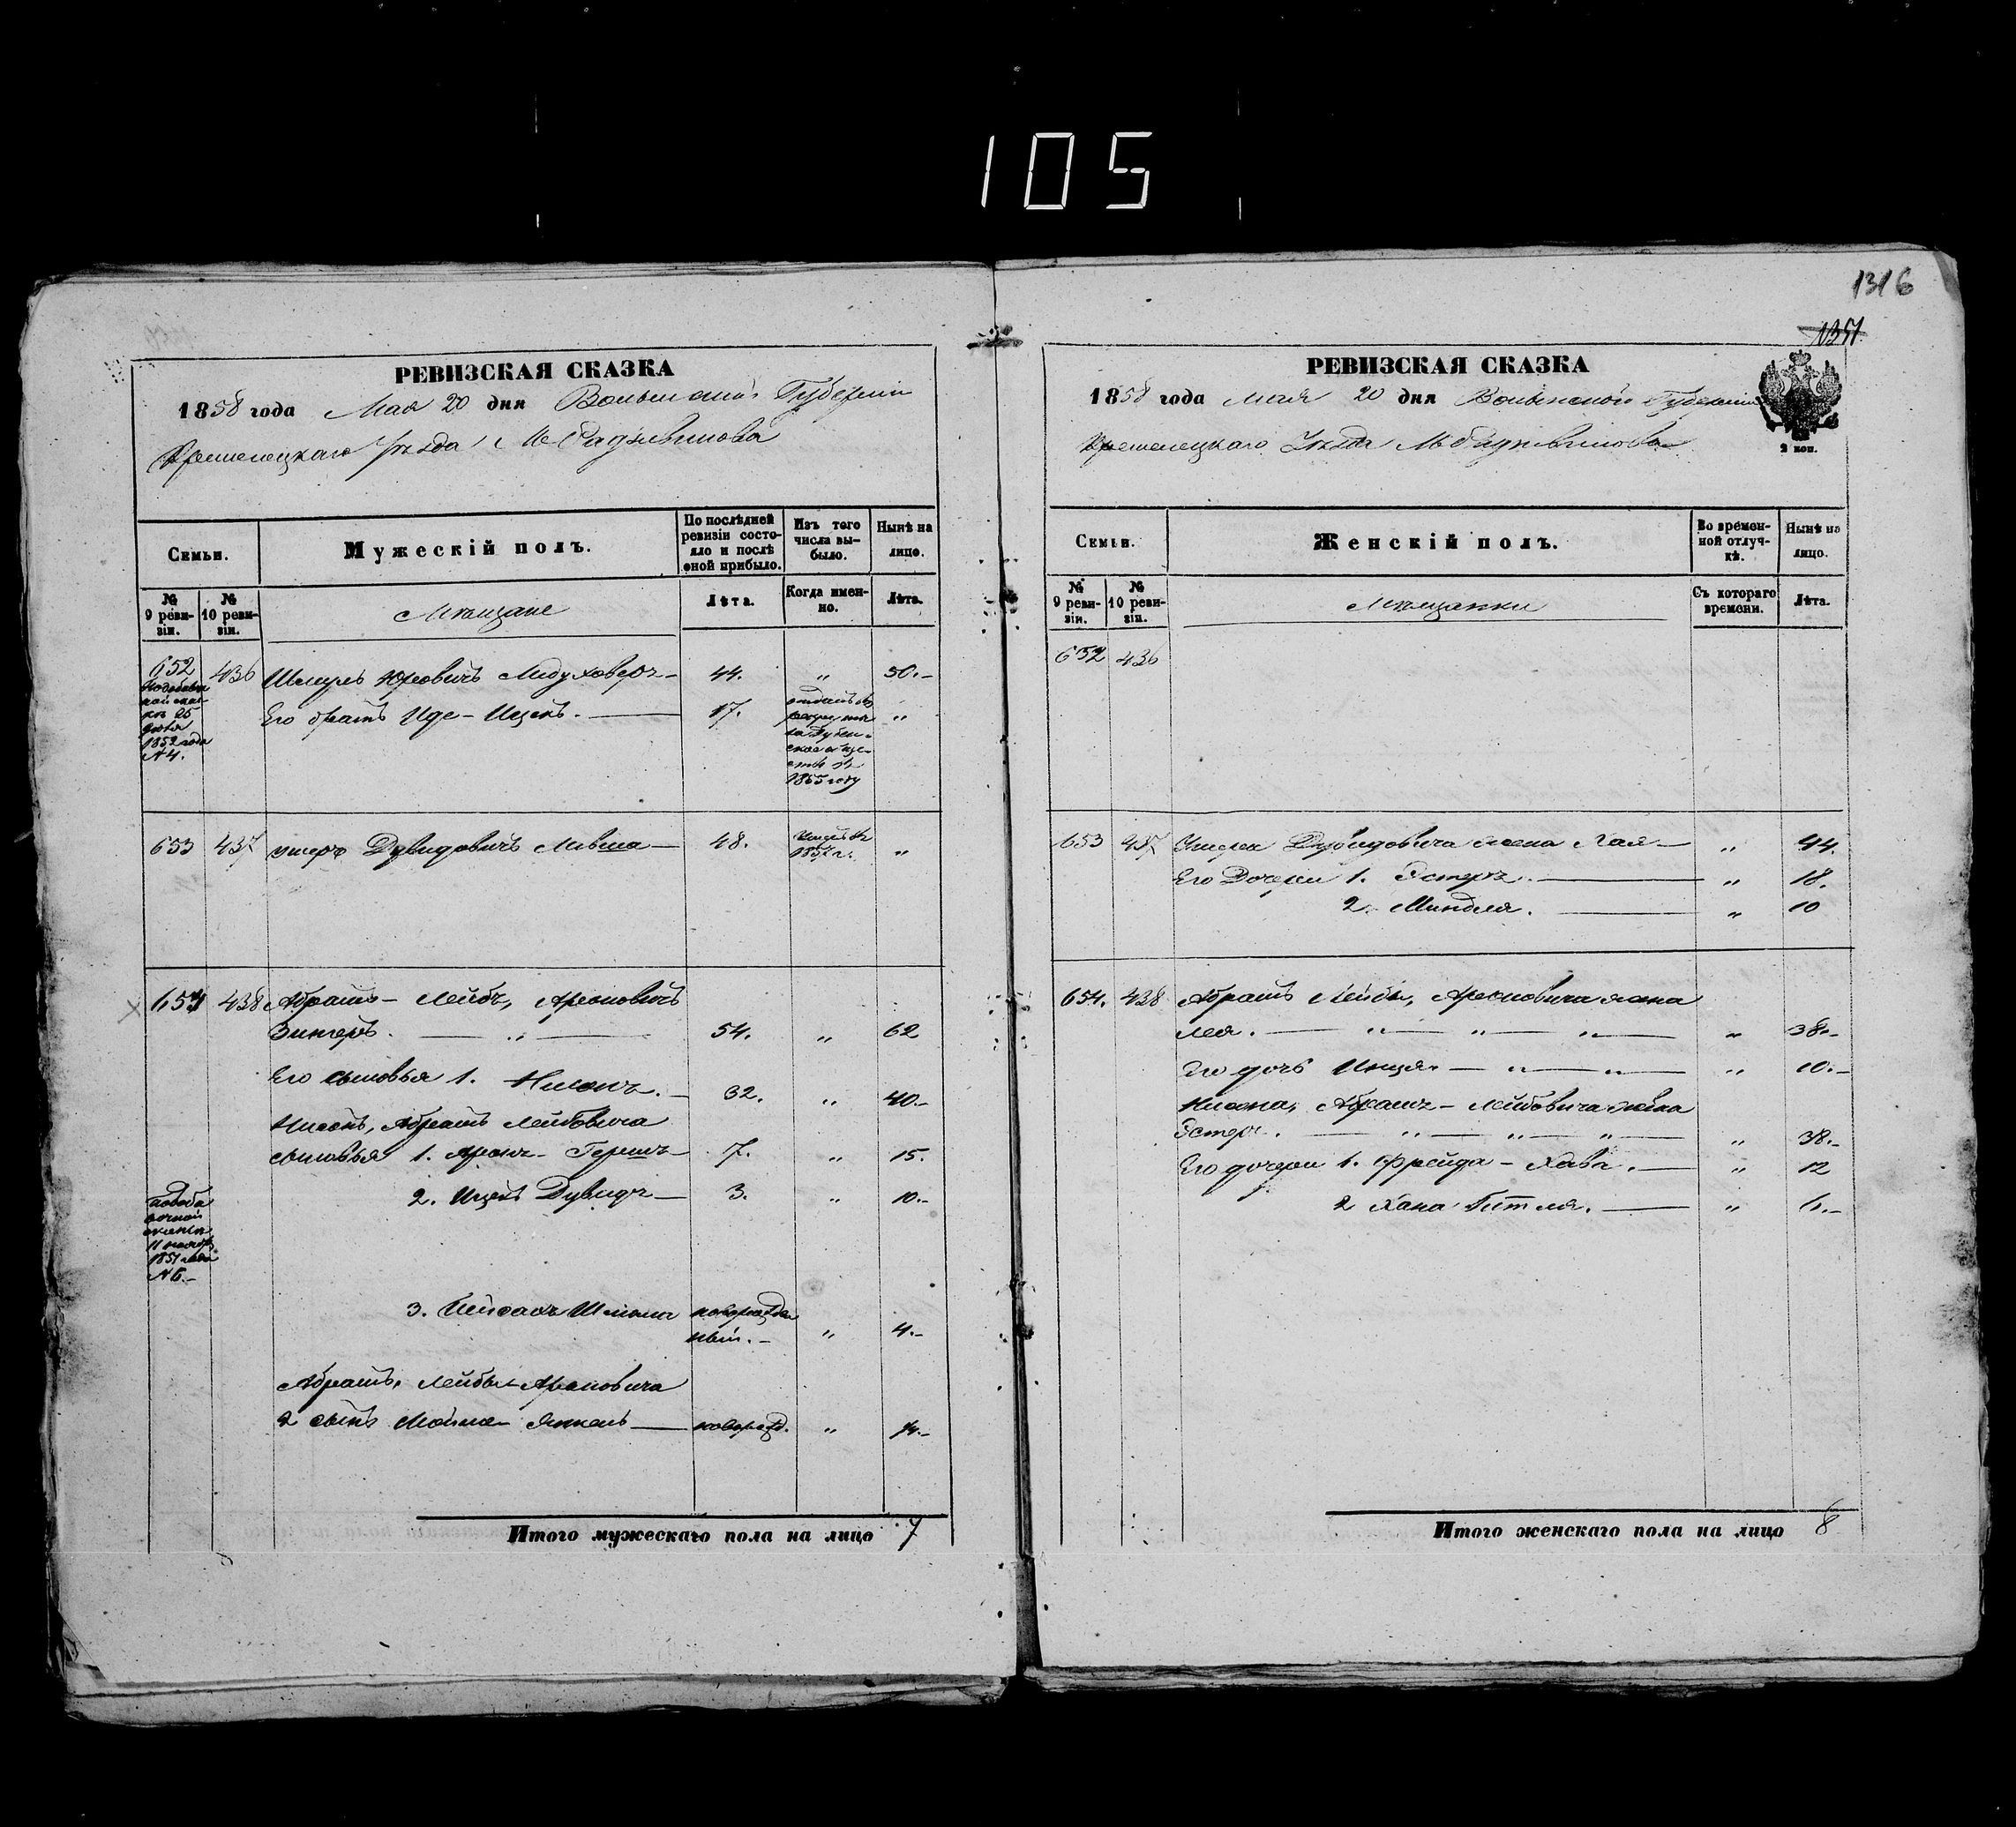 105
1316
1351
РЕВИЗСКАЯ СКАЗКА
1858 года Мая 20 дня Волынской Губерніи
Кременецкаго Уѣзда М. Радзивилова
Семьи.
Мужескій полъ.
По послѣдней ревизіи состояло и послѣ оной прибыло.
Изъ того числа выбыло.
Нынѣ на лицо.
№ 9 ревизіи.
№ 10 ревизіи.
Мѣщане
Лѣта.
Когда именно.
Лѣта.
652 436 Шмуль Юровичъ Медуховеръ 44. „ 50.
1852 года
№ 4.
Его братъ Иде-Ицекъ. 17. „
1855 году
653 437 Ушеръ Дувидовичъ Лившa 48. „
1857 г.
654 438 Абрамъ-Лейбъ, Ароновичъ
Зингеръ. 54. „ 62
Его сыновья 1. Нисонъ. 32. „ 40.
Нисонъ, Абрамъ Лейбовича
сыновья 1. Аронъ-Гершъ 7. „ 15.
2. Ицекъ Дувидъ 3. „ 10.
1851 года
№ 6.
3. Пейсахъ Шлома новорожденный. „ 4.
Абрамъ, Лейбы Ароновича
2 сынъ Мошко Янкель новорожд. „
Итого мужескаго пола на лицо 7
РЕВИЗСКАЯ СКАЗКА
1858 года Мая 20 дня Волынской Губерніи
Кременецкаго Уѣзда М. Радзивилова
2 коп.
Семьи.
Женскій полъ.
Во временной отлучкѣ.
Нынѣ на лицо.
№ 9 ревизіи.
№ 10 ревизіи.
Мѣщанки
Съ котораго времени.
Лѣта.
652 436
653 437 Ушера Дувидовича жена Хая „ 44.
Его Дочери 1. Эстеръ. „ 18.
2. Миндля. „ 10
654. 438 Абрамъ Лейбы, Ароновича жена
Лея. „ 38.
Его дочь „ 10.
Нисона, Абрамъ-Лейбовича жена
Эстеръ. „ 38.
Его дочери 1. Фрейда-Хава. „ 12
2 Хана Гитля. „ 6.
Итого женскаго пола на лицо 8